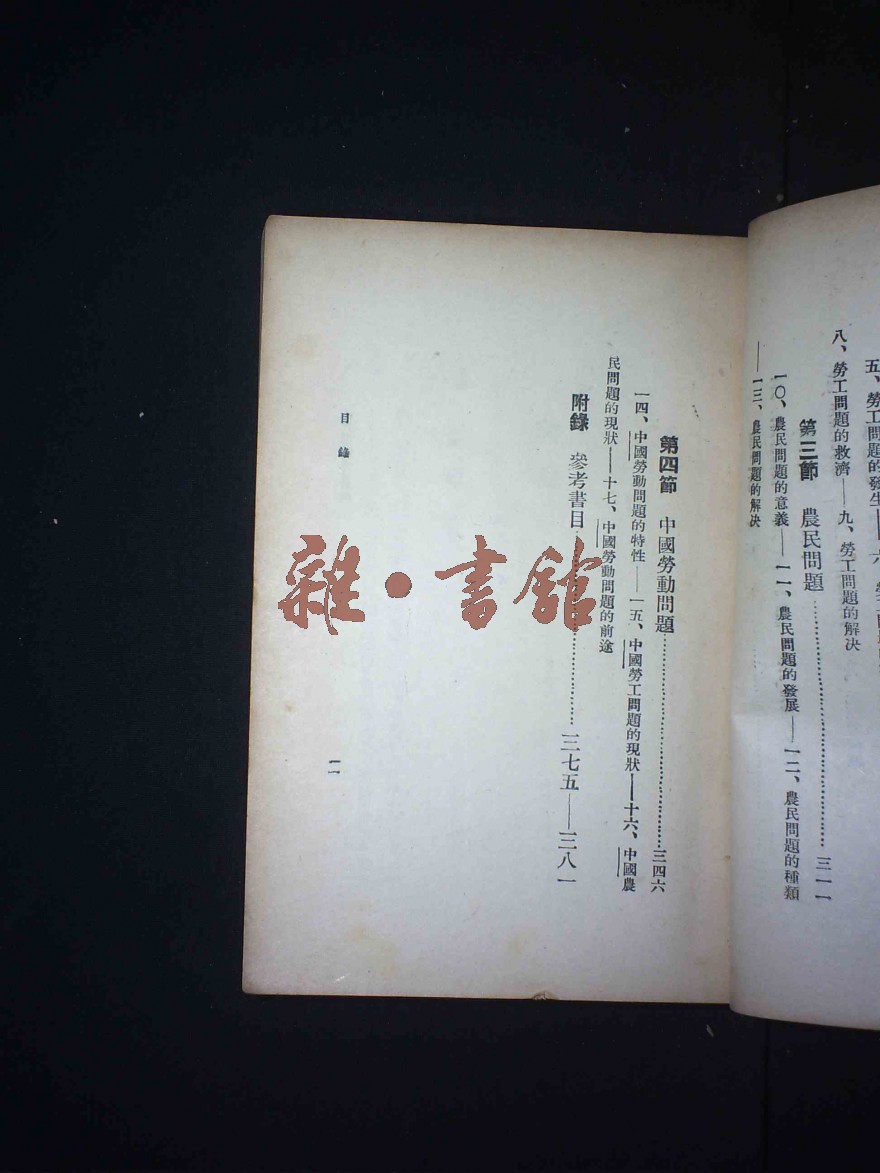 五、勞工問題的發生——六、勞
八、勞工問題的救濟——九、勞工問題的解決
第三節 農民問題……三一一
一〇、農民問題的意義——一一、農民問題的發展——一二、農民問題的種類
——一三、農民問題的解決
第四節 中國勞動問題……三四六
一四、中國勞動問題的特性——一五、中國勞工問題的現狀——十六、中國農
民問題的現狀——十七、中國勞動問題的前途
附錄 參考書目……三七五——三八一
目錄
一一
雜·書館